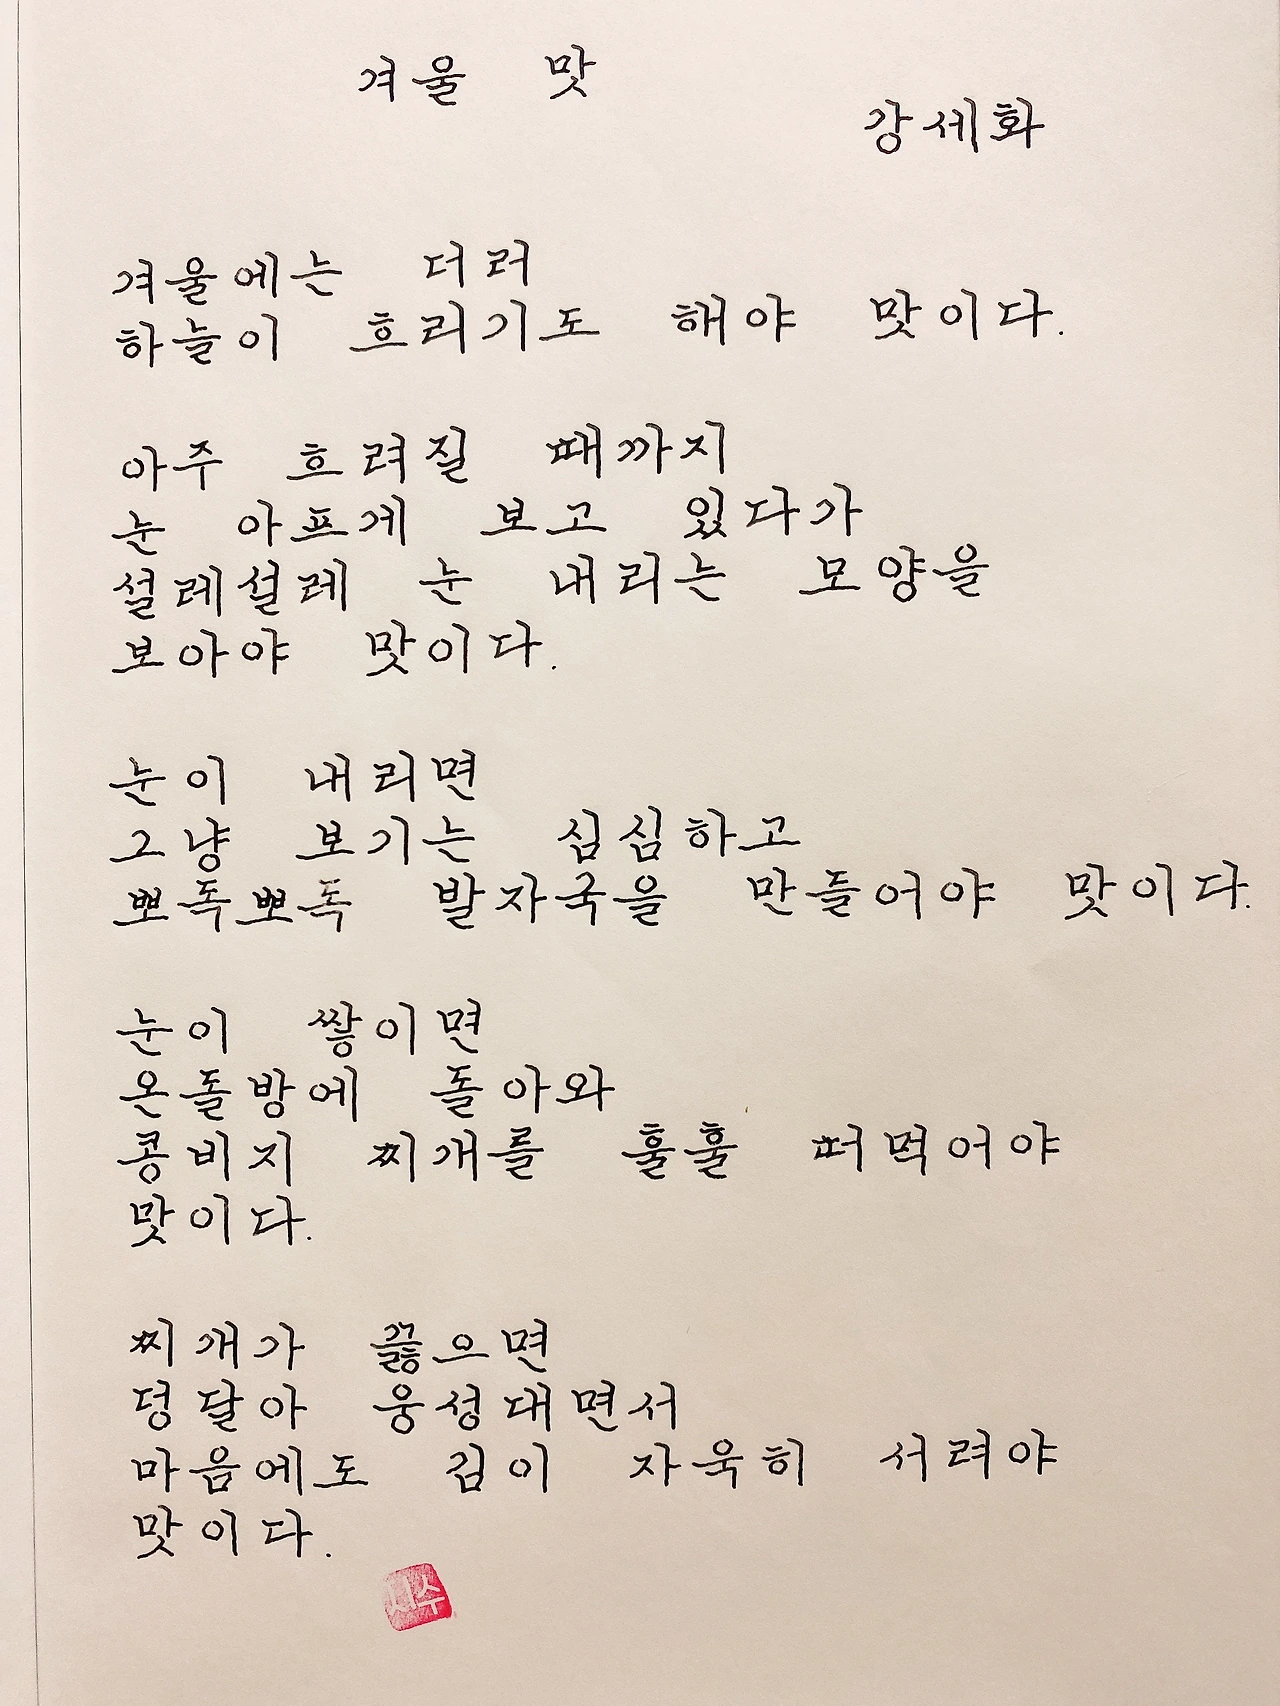 겨울 맛
강세화
겨울에는 더러
하늘이 흐리기도 해야 맛이다.
아주 흐려질 때까지
눈 아프게 보고 있다가
설레설레 눈 내리는 모양을
보아야 맛이다.
눈이 내리면
그냥 보기는 심심하고
뽀독뽀독 발자국을 만들어야 맛이다.
눈이 쌓이면
온돌방에 돌아와
콩비지 찌개를 훌훌 떠먹어야
맛이다.
찌개가 끓으면
덩달아 웅성대면서
마음에도 김이 자욱히 서려야
맛이다.